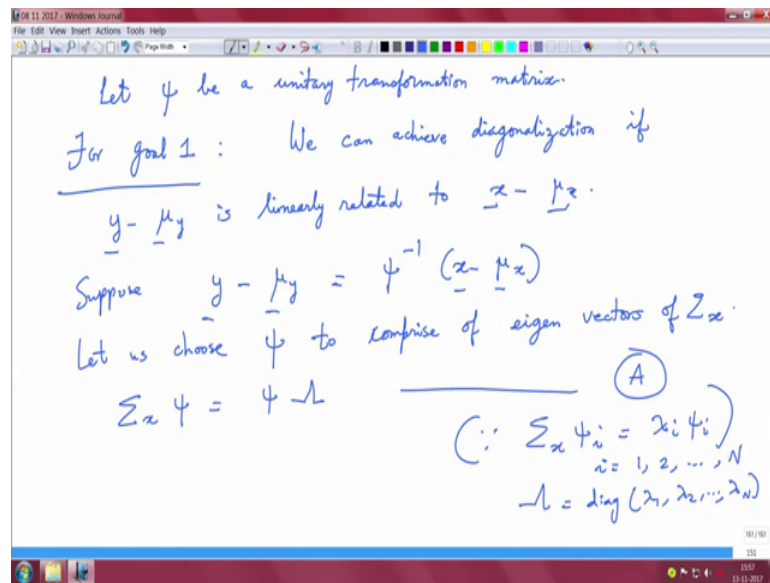 08 11 2017 - Windows Journal
File Edit View Insert Actions Tools Help
Page Width
Let ψ be a unitary transformation matrix.
For goal 1 : We can achieve diagonalization if
y - μy is linearly related to x - μx.
Suppose y - μy = ψ⁻¹ (x - μx)
Let us choose ψ to comprise of eigen vectors of Σx.
Σx ψ = ψ Λ ——— (A)
(∵ Σx ψi = λi ψi)
i = 1, 2, ..., N
Λ = diag (λ1, λ2, ..., λN)
151/151
151
15:57
13-11-2017